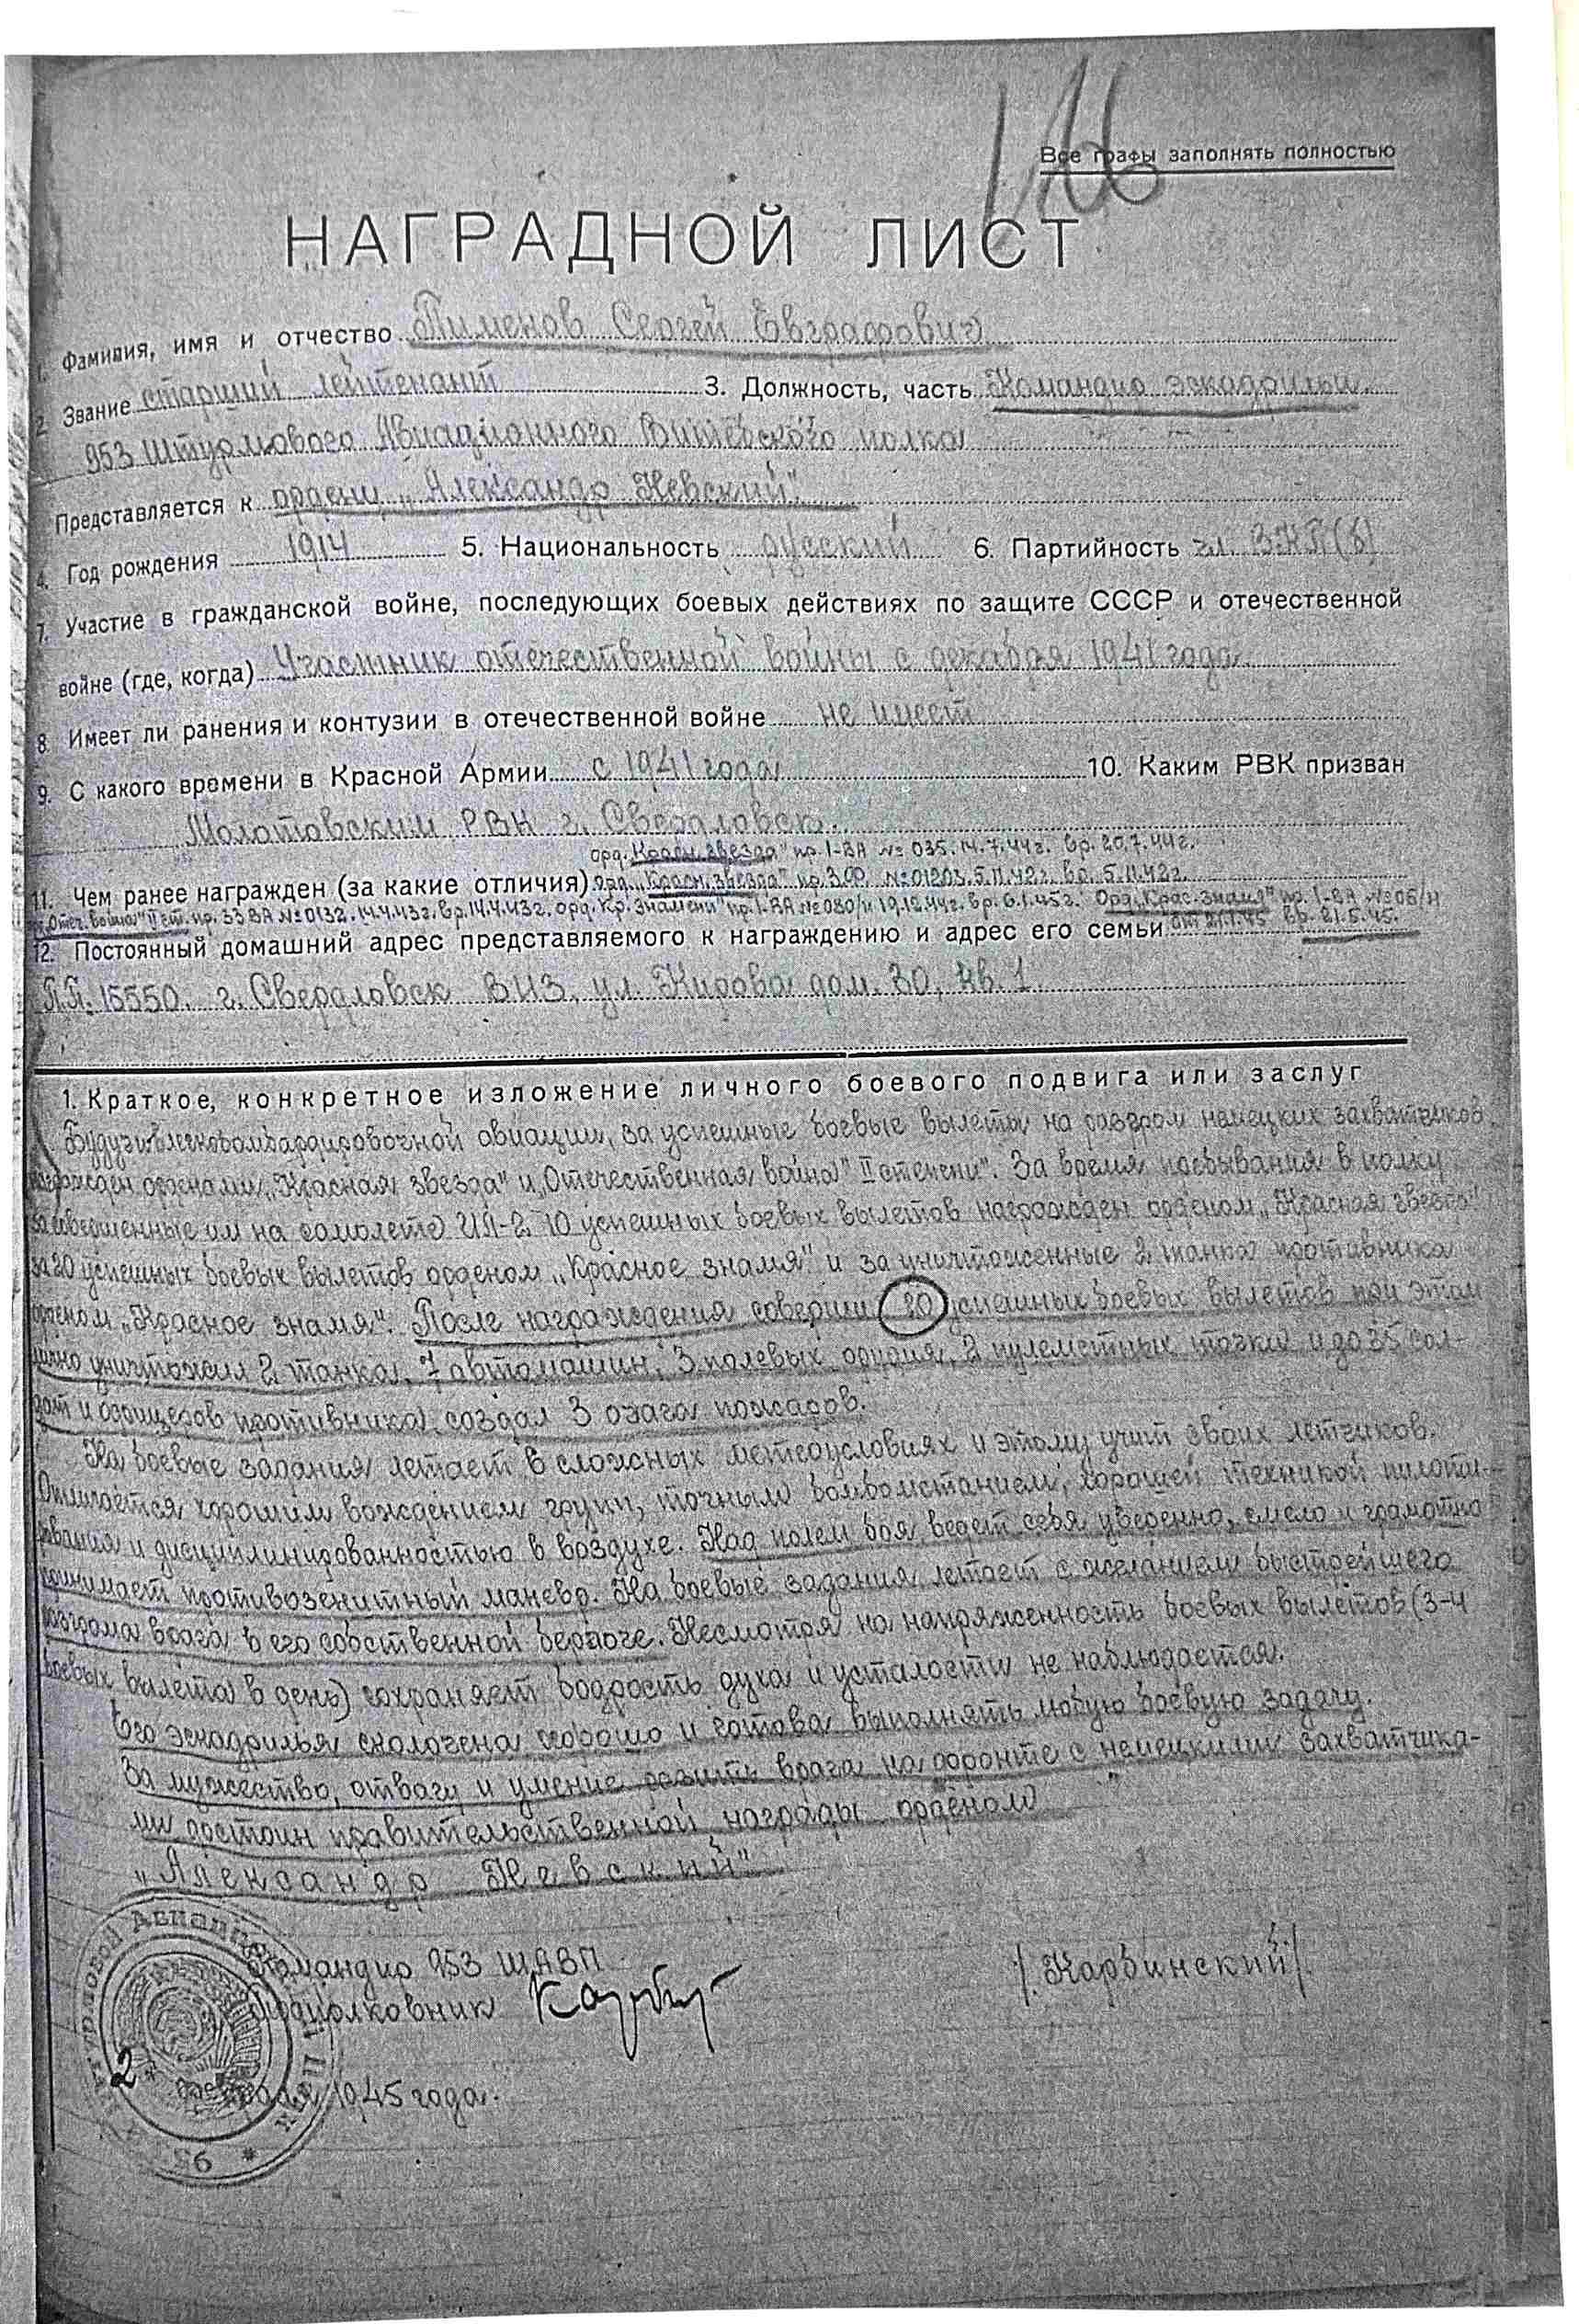 116
Все графы заполнять полностью
НАГРАДНОЙ ЛИСТ
1. Фамилия, имя и отчество Пименов Сергей Евграфович
2. Звание старший лейтенант 3. Должность, часть Командир эскадрильи
953 Штурмового Авиационного Витебского полка
Представляется к ордену „Александр Невский"
4. Год рождения 1914 5. Национальность русский 6. Партийность чл. ВКП(б)
7. Участие в гражданской войне, последующих боевых действиях по защите СССР и отечественной
войне (где, когда) Участник отечественной войны с декабря 1941 года
8. Имеет ли ранения и контузии в отечественной войне не имеет
9. С какого времени в Красной Армии с 1941 года 10. Каким РВК призван
Молотовским РВК г. Свердловск.
орд. „Красн. звезда" пр. 1-ВА № 035. 14.7.44г. вр. 20.7.44г.
11. Чем ранее награжден (за какие отличия) орд. „Красн. звезда" пр. З.Ф. №01203. 5.11.42г. вр. 5.11.42г.
„Отеч. война" II ст. пр. 3 ВА №0132. 14.4.43г. вр. 14.4.43г. орд. „Кр. Знамени" пр. 1-ВА №080/н 19.12.44г. вр. 6.1.45г. Орд. „Крас. знамя" пр. 1-ВА №06/н
12. Постоянный домашний адрес представляемого к награждению и адрес его семьи от 21.1.45 вр. 21.5.45.
П.П. 15550. г. Свердловск ВИЗ, ул. Кирова дом. 30, кв. 1.
1. Краткое, конкретное изложение личного боевого подвига или заслуг
Будучи в легкобомбардировочной авиации, за успешные боевые вылеты на разгром немецких захватчиков
награжден орденами „Красная звезда" и „Отечественная война" II степени". За время пребывания в полку
за совершенные им на самолете ИЛ-2 10 успешных боевых вылетов награжден орденом „Красная звезда"
за 20 успешных боевых вылетов орденом „Красное знамя" и за уничтоженные 2 танка противника
орденом „Красное знамя". После награждения совершил 20 успешных боевых вылетов при этом
лично уничтожил 2 танка, 7 автомашин, 3 полевых орудия, 2 пулеметных точки и до 35 сол-
дат и офицеров противника, создал 3 очага пожаров.
На боевые задания летает в сложных метеоусловиях и этому учит своих летчиков.
Отличается хорошим вождением групп, точным бомбометанием, хорошей техникой пилоти-
рования и дисциплинированностью в воздухе. Над полем боя ведет себя уверенно, смело и грамотно
принимает противозенитный маневр. На боевые задания летает с желанием быстрейшего
разгрома врага в его собственной берлоге. Несмотря на напряженность боевых вылетов (3-4
боевых вылета в день) сохраняет бодрость духа и усталости не наблюдается.
Его эскадрилья сколочена хорошо и готова выполнять любую боевую задачу.
За мужество, отвагу и умение разить врага на фронте с немецкими захватчика-
ми достоин правительственной награды орденом
„Александр Невский"
Командир 953 ШАВП
Подполковник /Карбинский/
2 1945 года.